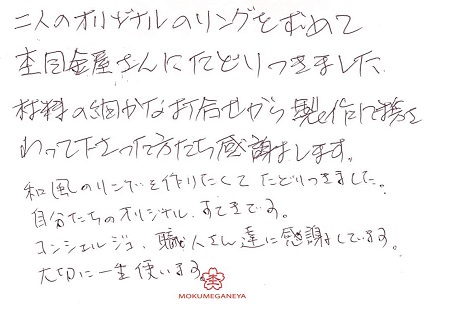 二人のオリジナルのリングをもとめて
杢目金屋さんにたどりつきました。
材料の細かなお合せから製作に携
わって下さった方たち感謝します。
和風のリングを作りたくてたどりつきました。
自分たちのオリジナル、すてきです。
コンシェルジュ、職人さん達に感謝しています。
大切に一生使います。
MOKUMEGANEYA